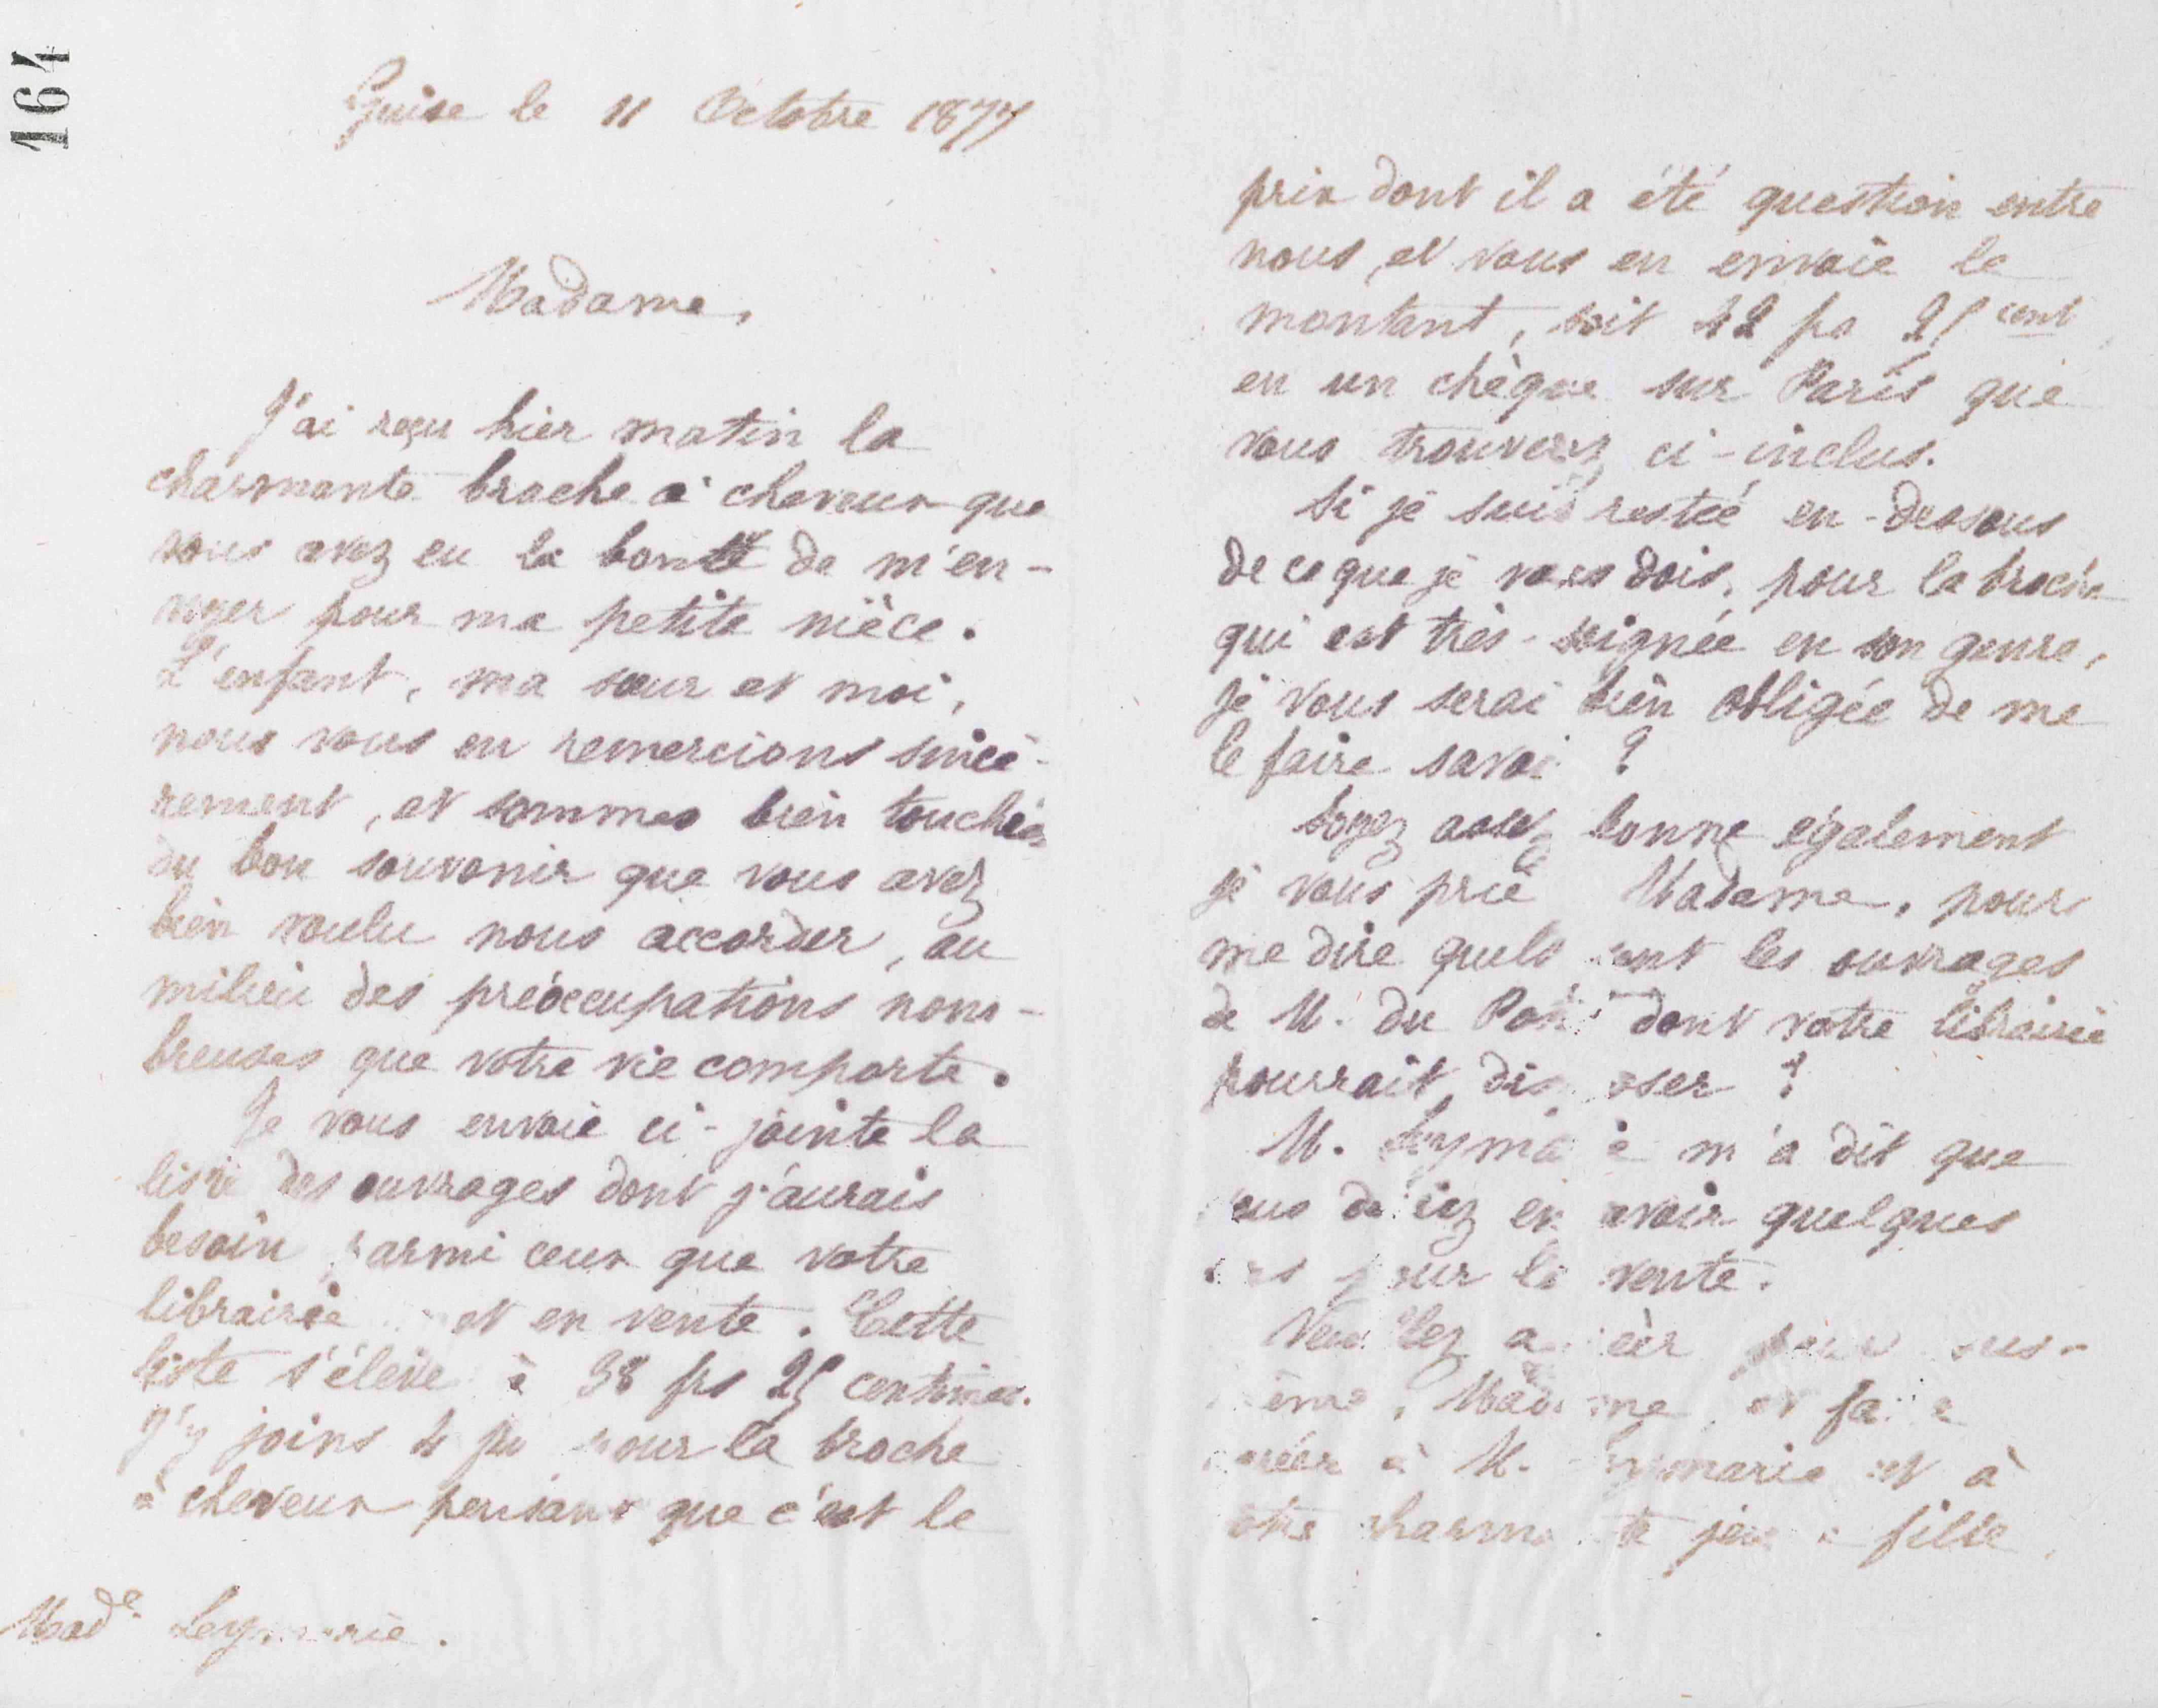 164
Guise le 11 Octobre 1877
Madame,
J'ai reçu hier matin la
charmante broche à cheveux que
vous avez eu la bonté de m'en-
voyer pour ma petite nièce.
L'enfant, ma sœur et moi,
nous vous en remercions sincè-
rement, et sommes bien touchées
du bon souvenir que vous avez
bien voulu nous accorder, au
milieu des préoccupations nom-
breuses que votre vie comporte.
Je vous envoie ci-jointe la
liste des ouvrages dont j'aurais
besoin parmi ceux que votre
librairie met en vente. Cette
liste s'élève à 38 frs 25 centimes.
J'y joins 4 frs pour la broche
à cheveux pensant que c'est le
Made Leymarie.
prix dont il a été question entre
nous, et vous en envoie le
montant, soit 42 frs 25 cent
en un chèque sur Paris que
vous trouverez ci-inclus.
Si je suis restée en-dessous
de ce que je vous dois, pour la broche
qui est très-soignée en son genre,
je vous serai bien obligée de me
le faire savoir ?
Soyez assez bonne également
je vous prie Madame, pour
me dire quels sont les ouvrages
de M. du dont votre librairie
pourrait disposer ?
M. Leymarie m'a dit que
vous deviez en avoir quelques
uns pour la vente.
Veuillez agréer pour vous-
même, Madame, et faire
agréer à M. Leymarie et à
votre charmante jeune fille,